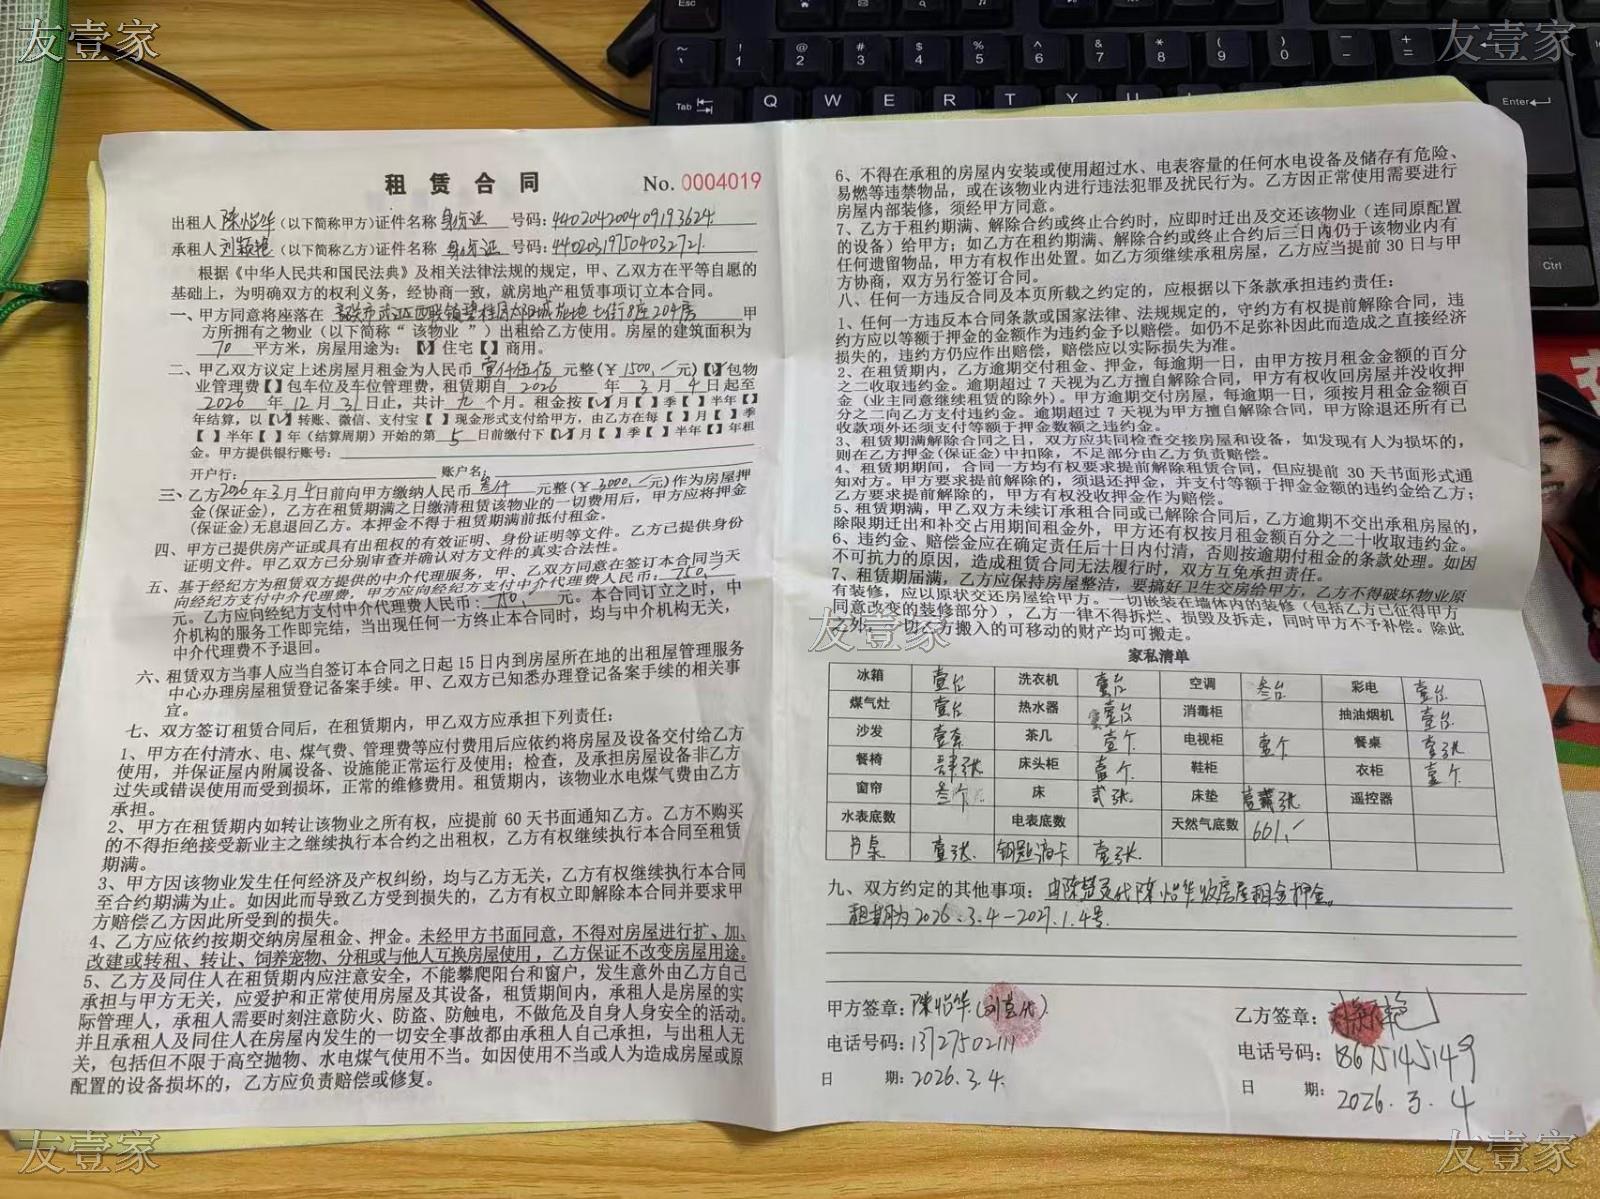 友壹家
友壹家
租 赁 合 同 No. 0004019
出租人 陈怡华 (以下简称甲方)证件名称 身份证 号码: 440204200409193624
承租人 刘颖艳 (以下简称乙方)证件名称 身份证 号码: 440203197504032721
根据《中华人民共和国民法典》及相关法律法规的规定,甲、乙双方在平等自愿的
基础上,为明确双方的权利义务,经协商一致,就房地产租赁事项订立本合同。
一、甲方同意将座落在 韶关市武江区西联镇碧桂园太阳城 街8座204房 甲
方所拥有之物业(以下简称“该物业”)出租给乙方使用。房屋的建筑面积为
70 平方米,房屋用途为:【√】住宅【 】商用。
二、甲乙双方议定上述房屋月租金为人民币 壹仟伍佰 元整(¥ 1500,-元)【√】包物
业管理费【 】包车位及车位管理费,租赁期自 2026 年 3 月 4 日起至
2026 年 12 月 31 日止,共计 九 个月。租金按【√】月【 】季【 】半年【 】
年结算,以【√】转账、微信、支付宝【 】现金形式支付给甲方,由乙方在每【 】月【 】季
【 】半年【 】年(结算周期)开始的第 5 日前缴付下【√】月【 】季【 】半年【 】年租
金。甲方提供银行账号:
开户行: 账户名:
三、乙方2026年3月4日前向甲方缴纳人民币 叁仟 元整(¥ 3000,-元)作为房屋押
金(保证金),乙方在租赁期满之日缴清租赁该物业的一切费用后,甲方应将押金
(保证金)无息退回乙方。本押金不得于租赁期满前抵付租金。
四、甲方已提供房产证或具有出租权的有效证明、身份证明等文件。乙方已提供身份
证明文件。甲乙双方已分别审查并确认对方文件的真实合法性。
五、基于经纪方为租赁双方提供的中介代理服务,甲、乙双方同意在签订本合同当天
向经纪方支付中介代理费,甲方应向经纪方支付中介代理费人民币: 750,-
元。乙方应向经纪方支付中介代理费人民币: 元。本合同订立之时,中
介机构的服务工作即完结,当出现任何一方终止本合同时,均与中介机构无关,
中介代理费不予退回。
六、租赁双方当事人应当自签订本合同之日起 15 日内到房屋所在地的出租屋管理服务
中心办理房屋租赁登记备案手续。甲、乙双方已知悉办理登记备案手续的相关事
宜。
七、双方签订租赁合同后,在租赁期内,甲乙双方应承担下列责任:
1、甲方在付清水、电、煤气费、管理费等应付费用后应依约将房屋及设备交付给乙方
使用,并保证屋内附属设备、设施能正常运行及使用;检查,及承担房屋设备非乙方
过失或错误使用而受到损坏,正常的维修费用。租赁期内,该物业水电煤气费由乙方
承担。
2、甲方在租赁期内如转让该物业之所有权,应提前 60 天书面通知乙方。乙方不购买
的不得拒绝接受新业主之继续执行本合约之出租权,乙方有权继续执行本合同至租赁
期满。
3、甲方因该物业发生任何经济及产权纠纷,均与乙方无关,乙方有权继续执行本合同
至合约期满为止。如因此而导致乙方受到损失的,乙方有权立即解除本合同并要求甲
方赔偿乙方因此所受到的损失。
4、乙方应依约按期交纳房屋租金、押金。未经甲方书面同意,不得对房屋进行扩、加、
改建或转租、转让、饲养宠物、分租或与他人互换房屋使用,乙方保证不改变房屋用途。
5、乙方及同住人在租赁期内应注意安全,不能攀爬阳台和窗户,发生意外由乙方自己
承担与甲方无关,应爱护和正常使用房屋及其设备,租赁期间内,承租人是房屋的实
际管理人,承租人需要时刻注意防火、防盗、防触电,不做危及自身人身安全的活动。
并且承租人及同住人在房屋内发生的一切安全事故都由承租人自己承担,与出租人无
关,包括但不限于高空抛物、水电煤气使用不当。如因使用不当或人为造成房屋或原
配置的设备损坏的,乙方应负责赔偿或修复。
6、不得在承租的房屋内安装或使用超过水、电表容量的任何水电设备及储存有危险、
易燃等违禁物品,或在该物业内进行违法犯罪及扰民行为。乙方因正常使用需要进行
房屋内部装修,须经甲方同意。
7、乙方于租约期满、解除合约或终止合约时,应即时迁出及交还该物业(连同原配置
的设备)给甲方;如乙方在租约期满、解除合约或终止合约后三日内仍于该物业内有
任何遗留物品,甲方有权作出处置。如乙方须继续承租房屋,乙方应当提前 30 日与甲
方协商,双方另行签订合同。
八、任何一方违反合同及本页所载之约定的,应根据以下条款承担违约责任:
1、任何一方违反本合同条款或国家法律、法规规定的,守约方有权提前解除合同,违
约方应以等额于押金的金额作为违约金予以赔偿。如仍不足弥补因此而造成之直接经济
损失的,违约方仍应作出赔偿,赔偿应以实际损失为准。
2、在租赁期内,乙方逾期交付租金、押金,每逾期一日,由甲方按月租金金额的百分
之二收取违约金。逾期超过 7 天视为乙方擅自解除合同,甲方有权收回房屋并没收押
金(业主同意继续租赁的除外)。甲方逾期交付房屋,每逾期一日,须按月租金金额百
分之二向乙方支付违约金。逾期超过 7 天视为甲方擅自解除合同,甲方除退还所有已
收款项外还须支付等额于押金数额之违约金。
3、租赁期满解除合同之日,双方应共同检查交接房屋和设备,如发现有人为损坏的,
则在乙方押金(保证金)中扣除,不足部分由乙方负责赔偿。
4、租赁期期间,合同一方均有权要求提前解除租赁合同,但应提前 30 天书面形式通
知对方。甲方要求提前解除的,须退还押金,并支付等额于押金金额的违约金给乙方;
乙方要求提前解除的,甲方有权没收押金作为赔偿。
5、租赁期满,甲乙双方未续订承租合同或已解除合同后,乙方逾期不交出承租房屋的,
除限期迁出和补交占用期间租金外,甲方还有权按月租金额百分之二十收取违约金。
6、违约金、赔偿金应在确定责任后十日内付清,否则按逾期付租金的条款处理。如因
不可抗力的原因,造成租赁合同无法履行时,双方互免承担责任。
7、租赁期届满,乙方应保持房屋整洁,要搞好卫生交房给甲方,乙方不得破坏物业原
有装修,应以原状交还房屋给甲方。一切嵌装在墙体内的装修(包括乙方已征得甲方
同意改变的装修部分),乙方一律不得拆烂、损毁及拆走,同时甲方不予补偿。除此
之外,一切乙方搬入的可移动的财产均可搬走。
友壹家
家私清单
冰箱 壹台 洗衣机 壹台 空调 叁台 彩电 壹台
煤气灶 壹台 热水器 壹台 消毒柜 抽油烟机 壹台
沙发 壹套 茶几 壹个 电视柜 壹个 餐桌 壹张
餐椅 肆张 床头柜 壹个 鞋柜 衣柜 壹个
窗帘 叁个 床 贰张 床垫 张 遥控器
水表底数 电表底数 天然气底数 661,-
书桌 壹张 钥匙 卡 壹张
九、双方约定的其他事项: 由陈 代陈怡华收房屋租金押金。
租期为2026.3.4-2027.1.4号.
甲方签章: 陈怡华(刘 代)
电话号码: 13727502111
日 期: 2026.3.4.
乙方签章:
电话号码: 18675145149
日 期: 2026.3.4
友壹家
友壹家
~ ` ! 1 @ 2 # 3 $ 4 % 5 ^ 6 & 7 * 8 ( 9 ) 0
Esc
Tab Q W E R T Y U
Enter
Ctrl